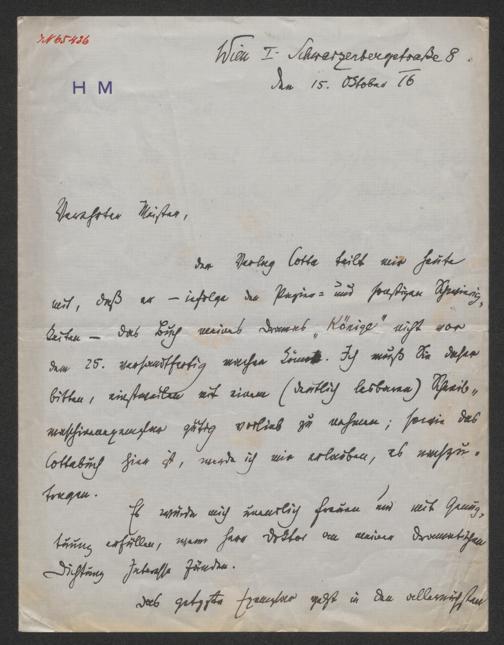 JN 65436
Wien I. Schwarzenbergstraße 8.
den 15. Oktober 16
H M
Verehrter Meister,
der Verlag Cotta teilt mir heute
mit, daß er – infolge der Papier- und sonstigen Schwierig-
keiten – das Buch meines Dramas „Könige" nicht vor
dem 25. versandtfertig machen könne. Ich muß Sie daher
bitten, einstweilen mit einem (deutlich lesbaren) Schreib-
maschinenexemplar gütig vorlieb zu nehmen; sowie das
Cottabuch hier ist, werde ich mir erlauben, es nachzu-
tragen.
Es würde mich unendlich freuen und mit Genug-
tuung erfüllen, wenn Herr Doktor an meiner dramatischen
Dichtung Interesse fänden.
Das getippte Exemplar geht in den allernächsten